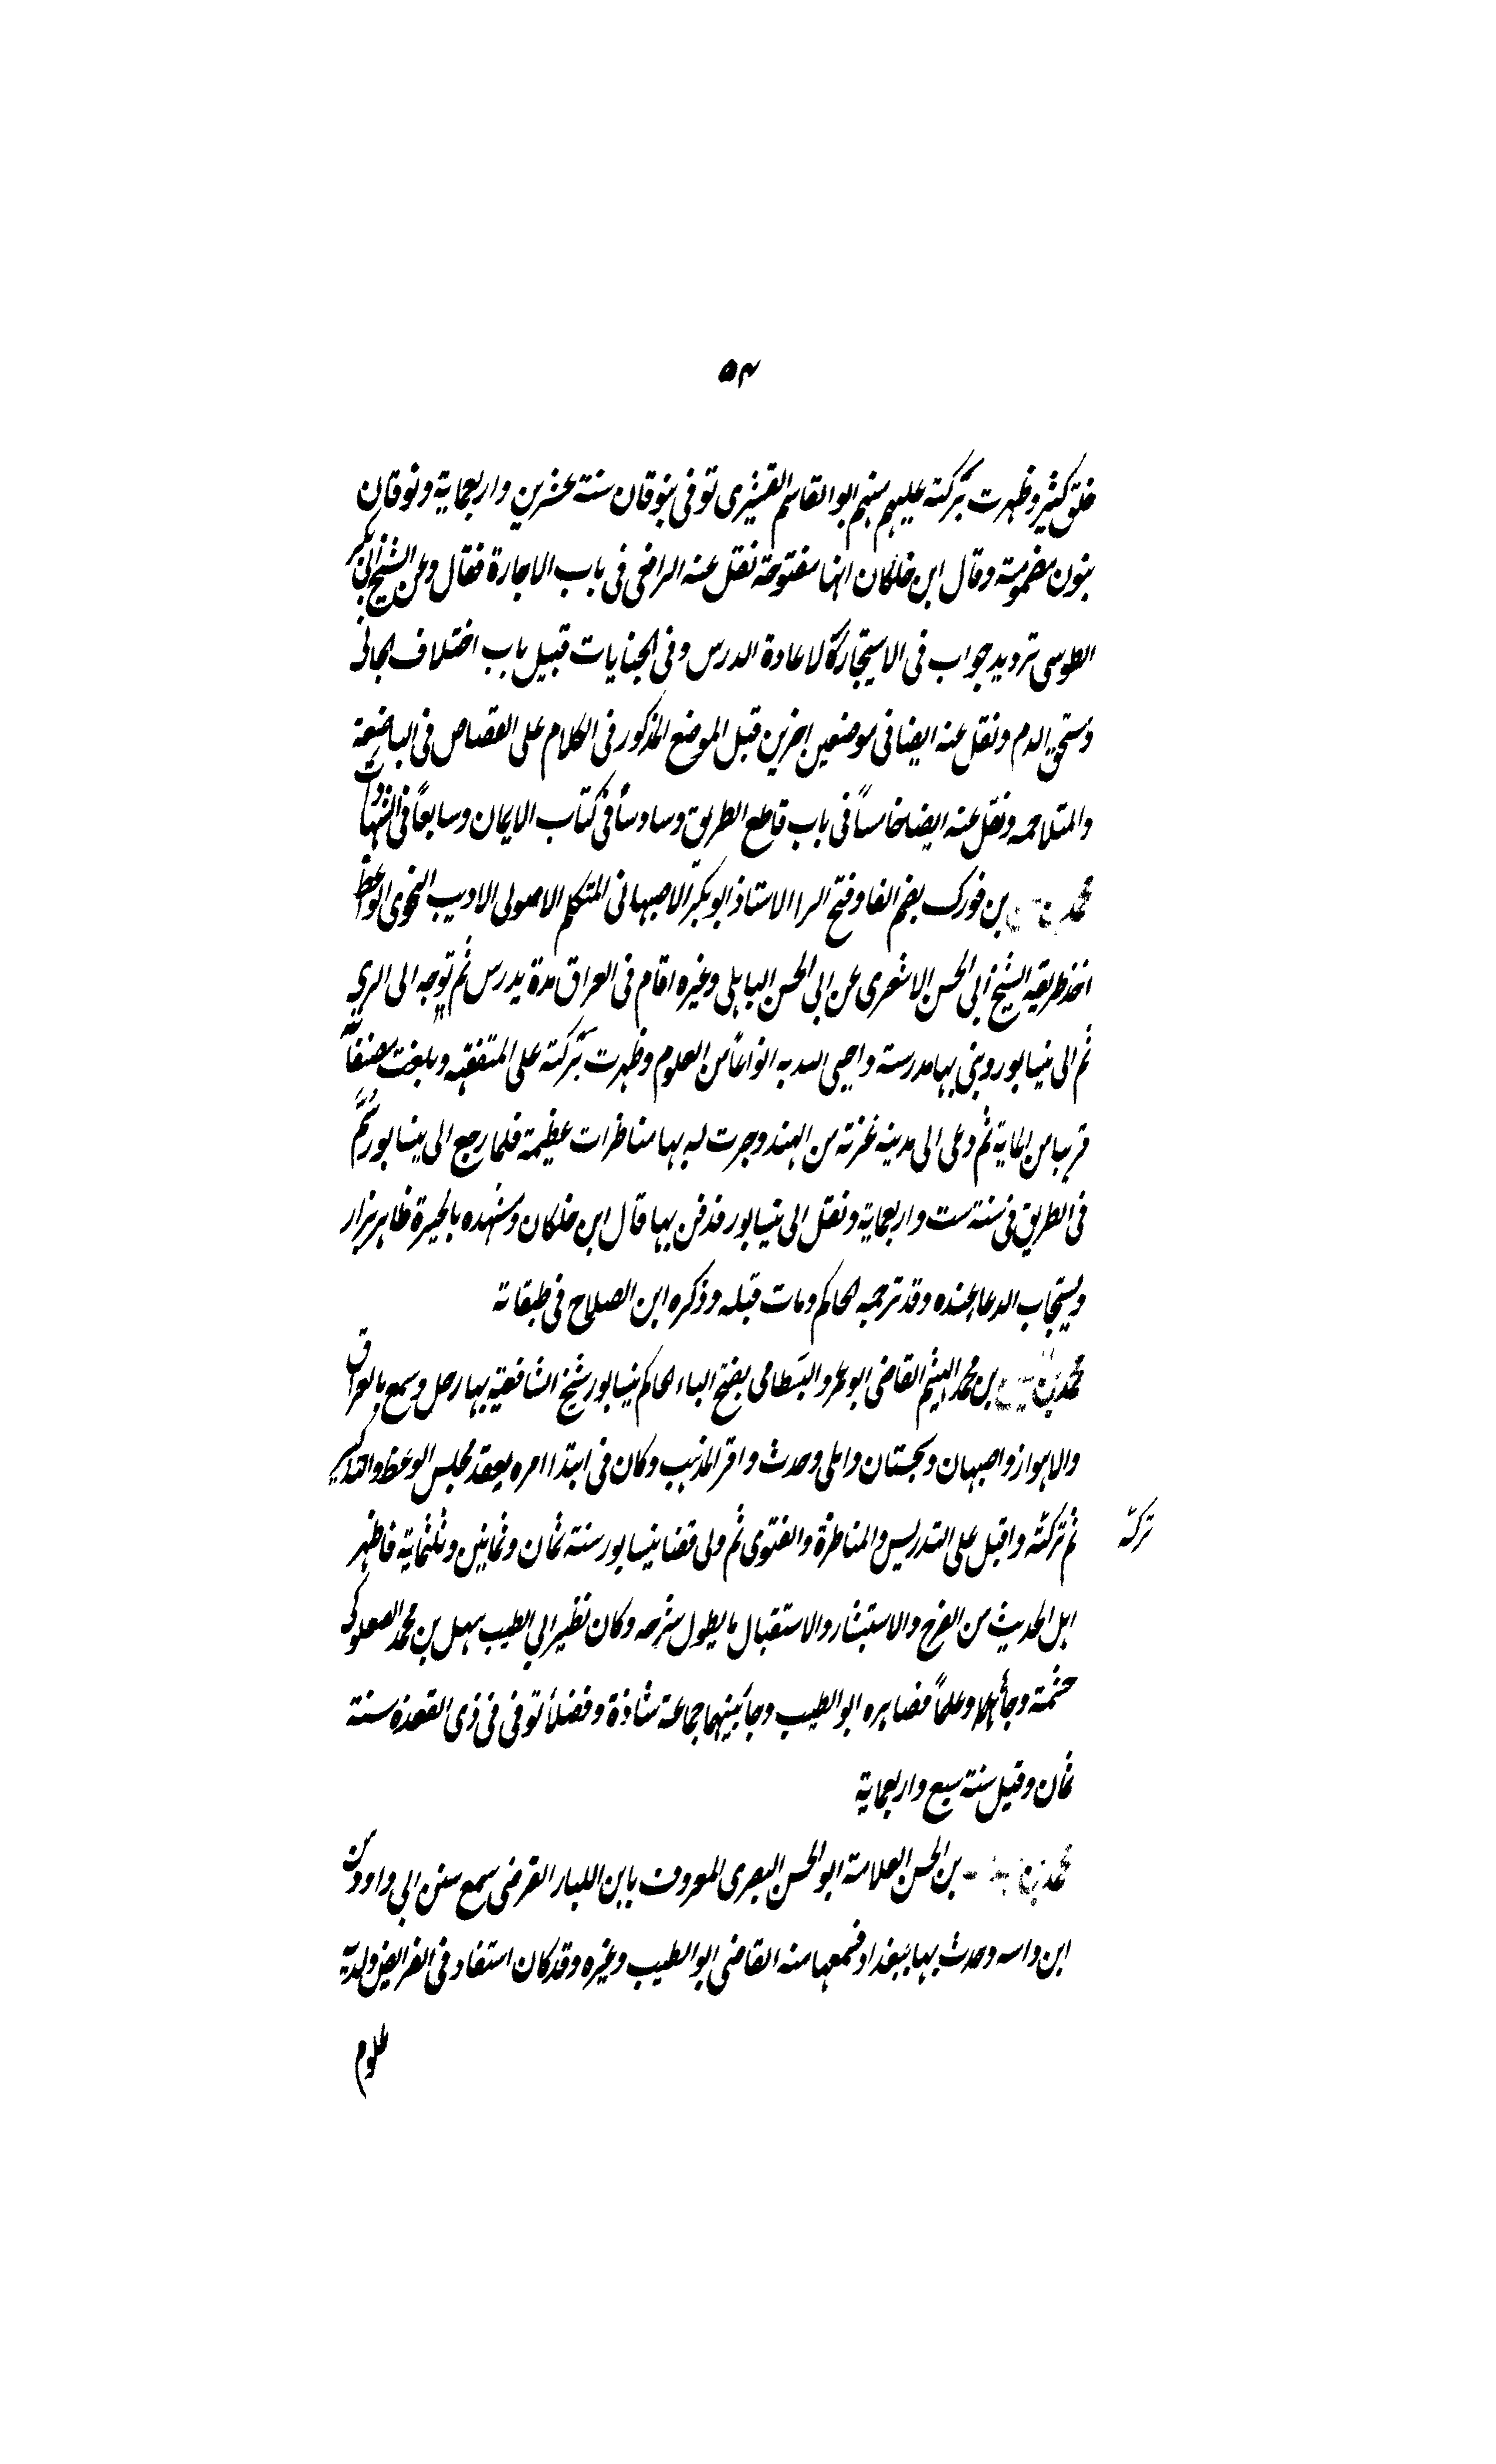 ٥٣
خلق كثير وظهرت بركته عليهم منهم ابو القاسم القشيرى توفى بنوقان سنة عشرين واربعماية ونوقان
بنون مضمومة وقال ابن خلكان انها مفتوحة نقل عنه الرافعى فى باب الاجارة فقال وعن الشيخ ابى بكر
الطوسى ترديد جواب فى الاستيجار كا لاعادة الدرس وفى الجنايات قبيل باب اختلاف الجانى
ومستحق الدم ونقل عنه ايضا فى موضعين اخرين قبل الموضع المذكور فى الكلام على القصاص فى الباضعة
والمتلاحمه ونقل عنه ايضا خامساً فى باب قاطع الطريق وسادساً فى كتاب الايمان وسابعاً فى الشهادات
محمد بن بن فورك بضم الفا وفتح الرا الاستاذ ابو بكر الاصبهانى المتكلم الاصولى الاديب النحوى الواعظ
اخذ طريقة الشيخ ابى الحسن الاشعرى عن ابى الحسن الباهلى وغيره اقام فى العراق مدة يدرس ثم توجه الى الرى
ثم الى نيسابور وبنى بها مدرسة واحيى الله به انواعاً من العلوم وظهرت بركته على المتفقهه وبلغت مصنفاته
قريبا من الماية ثم دعى الى مدينة غزنة من الهند وجرت له بها مناظرات عظيمة فلما رجع الى نيسابور سُمَّ
فى الطريق فى سنة ست واربعماية ونقل الى نيسابور فدفن بها قال ابن خلكان ومشهده بالحيرة ظاهر يزار
ويستجاب الدعا عنده وقد ترجمه الحاكم ومات قبله وذكره ابن الصلاح فى طبقاته
محمد بن بن محمد الهيثم القاضى ابو عمرو البَسطامى بفتح الباء الحاكم نيسابور شيخ الشافعية بها رحل وسمع بالعراق
والاهواز واصبهان وسجستان واملى وحدث واقر المذهب وكان فى ابتدا امره يعقد مجلس الوعظ والتذكير
ثم تركته واقبل على التدريس والمناظرة والفتوى ثم ولى قضا نيسابور سنة ثمان وثمانين وثلثماية فاظهر
تركه
اهل الحديث من الفرح والاستبشار والاستقبال ما يطول شرحه وكان نظير ابى الطيب سهل بن محمد الصعلوكى
حشمة وجاهاً وعلماً فصاهره ابو الطيب وجا بينهما جماعة سادة وفضلا توفى فى ذى القعدة سنة
ثمان وقيل سنة سبع واربعماية
محمد بن بن الحسن العلامة ابو الحسن البصرى المعروف بابن اللبان الفرضى سمع سنن ابى داود من
ابن داسه وحدث بها ببغداد فسمعها منه القاضى ابو الطيب وغيره وقد كان استفاد فى الفرايض ولديه
علوم